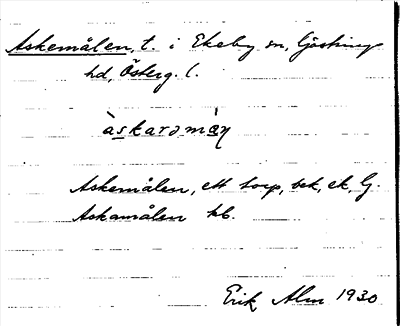 Askemålen, t. i Ekeby sn, Göstrings
hd, Österg. l.
àskarəmán
Askemålen, ett torp, bek, ek, Gj.
Askamålen kb.
Erik Alm 1930